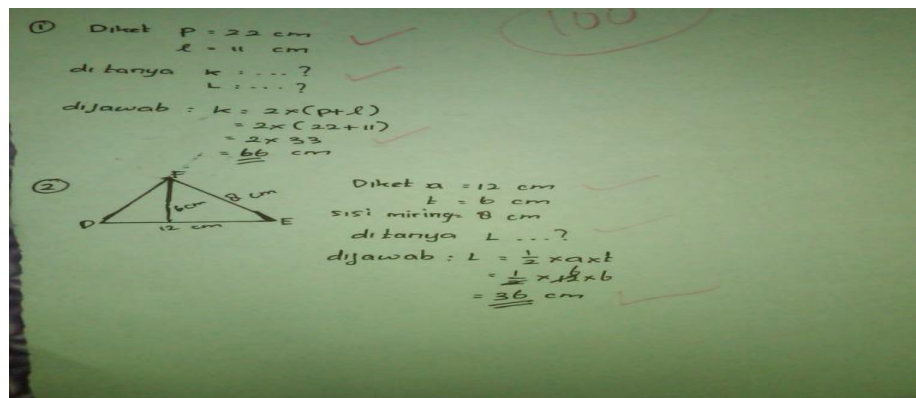 100
① Diket p = 22 cm
l = 11 cm
ditanya k : ... ?
L : ... ?
dijawab : k = 2x(p+l)
= 2x(22+11)
= 2x33
= 66 cm
②
F
6cm
8 cm
D
12 cm
E
Diket a = 12 cm
t = 6 cm
sisi miring= 8 cm
ditanya L ...?
dijawab : L = 1/2 x a x t
= 1/2 x 12 6 x 6
= 36 cm